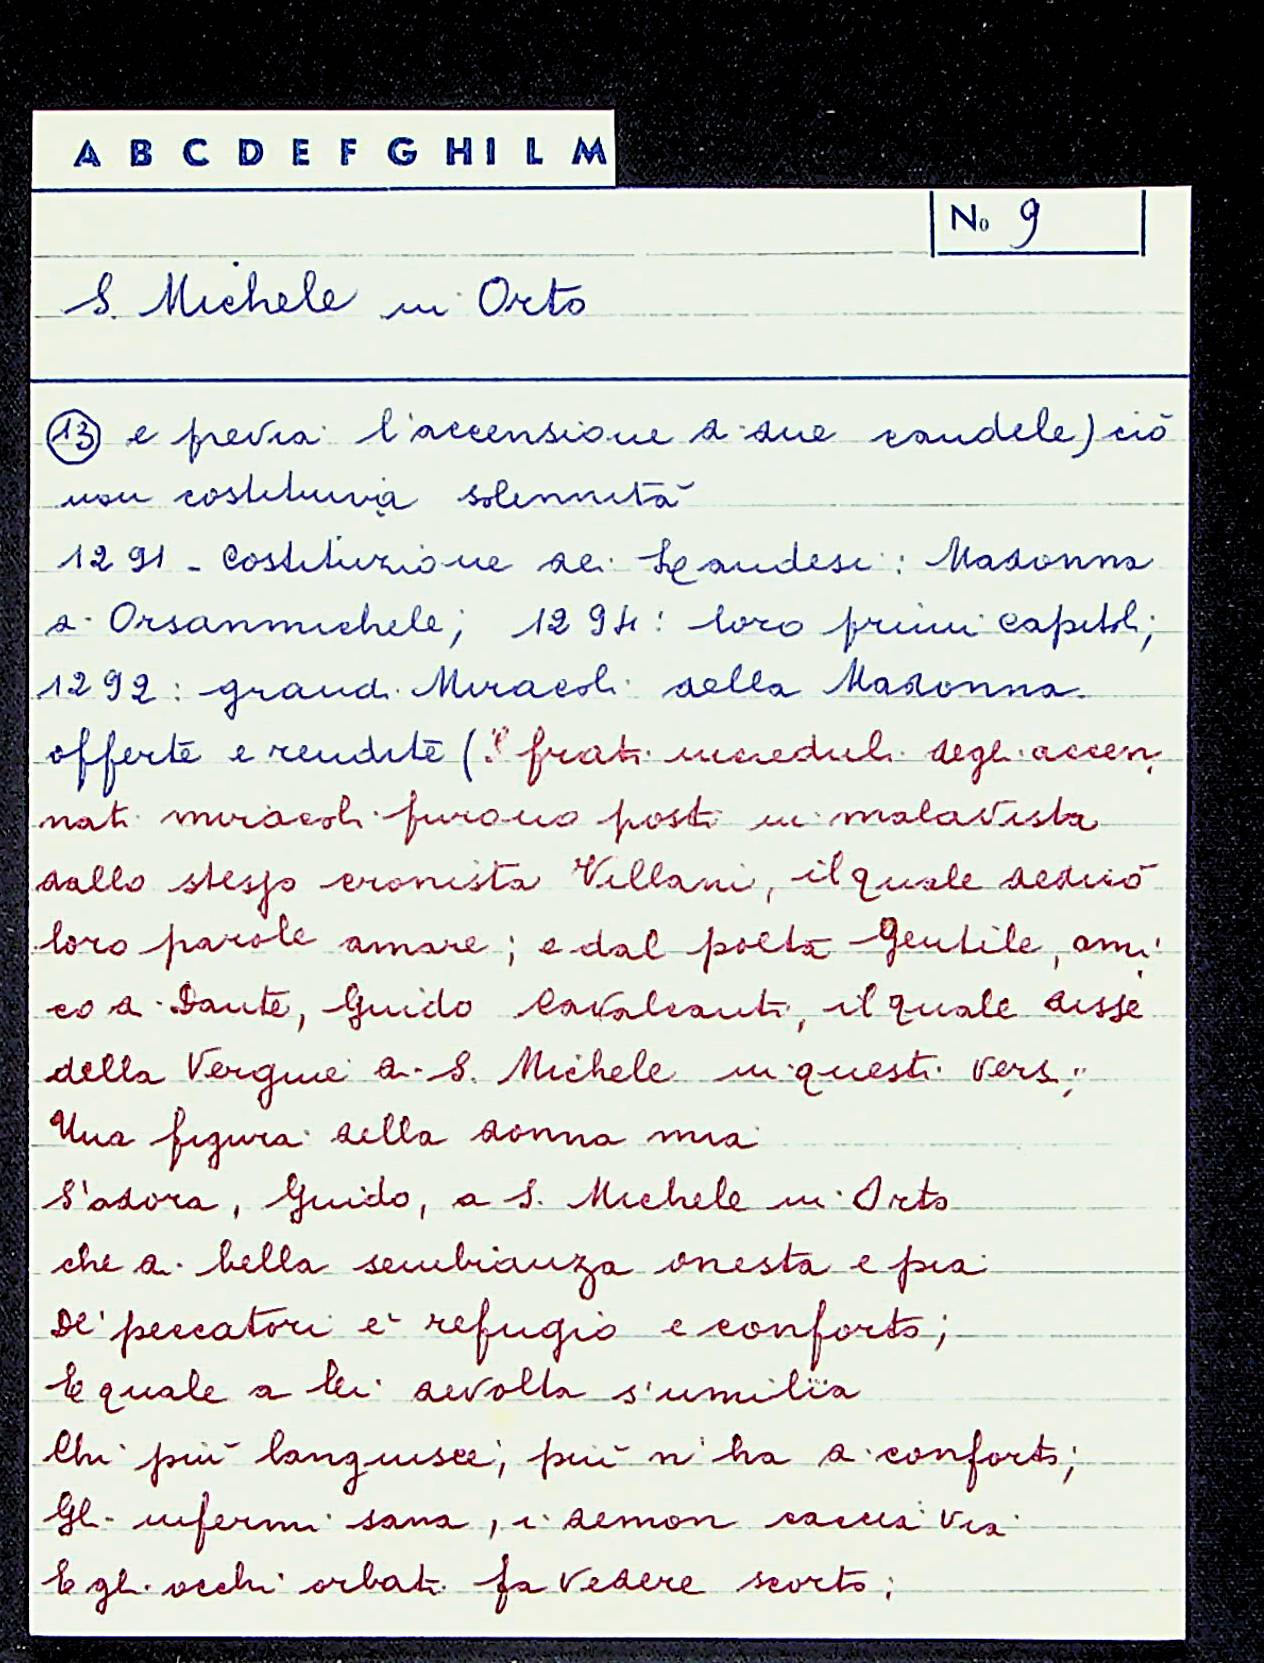 A B C D E F G H I L M
No 9
S. Michele in Orto
13 e previa l'accensione di due candele) ciò
non costituiva solennità
1291 - Costituzione dei Laudesi: Madonna
di Orsanmichele; 1294: loro primi capitoli;
1292: grandi Miracoli della Madonna.
offerte e rendite (i frati increduli degli accen,
nati miracoli furono posti in malavista
dallo stesso cronista Villani, il quale dedicò
loro parole amare; e dal poeta Gentile, ami,
co di Dante, Guido Cavalcanti, il quale disse
della Vergine di S. Michele in questi versi:
Una figura della donna mia
S'adora, Guido, a S. Michele in Orto
che di bella sembianza onesta e pia
De' peccatori è refugio e conforto;
E quale a lei devolta s'umilïa
Chi più languisce, più n'ha di conforto;
Gli infermi sana, i demon caccia via
E gli occhi orbati fa vedere scorto;